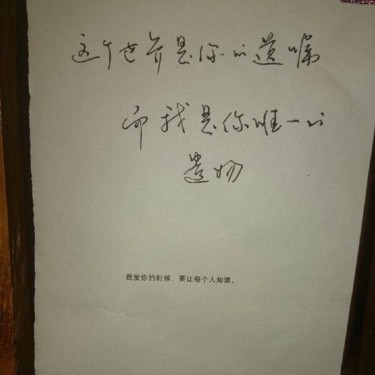 这个世界是你的遗嘱
而我是你唯一的
遗物
我爱你的时候，要让每个人知道。